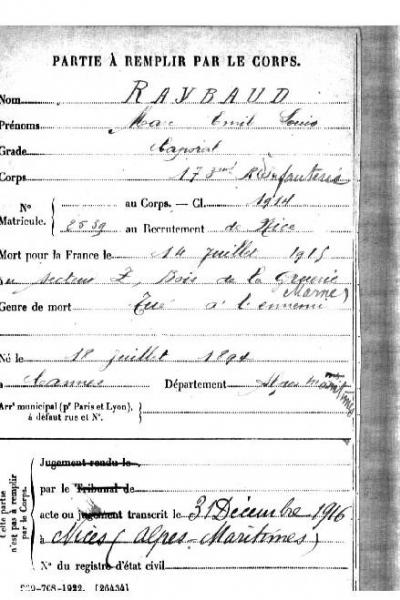 PARTIE À REMPLIR PAR LE CORPS.
Nom RAYBAUD
Prénoms Marc Emil Louis
Grade Caporal
Corps 173me R. Infanterie
Nº au Corps. — Cl. 1914
Matricule. 2539 au Recrutement de Nice
Mort pour la France le 14 juillet 1915
au secteur Z, Bois de la Gruerie
Marne)
Genre de mort Tué à l'ennemi
Né le 18 juillet 1894
à Cannes Département Alpes Maritimes
Arrt municipal (pr Paris et Lyon),
à défaut rue et Nº.
Cette partie
n'est pas à remplir
par le Corps.
Jugement rendu le
par le Tribunal de
acte ou jugement transcrit le 31 Décembre 1916
à Nices (Alpes-Maritimes)
Nº du registre d'état civil
[26434]